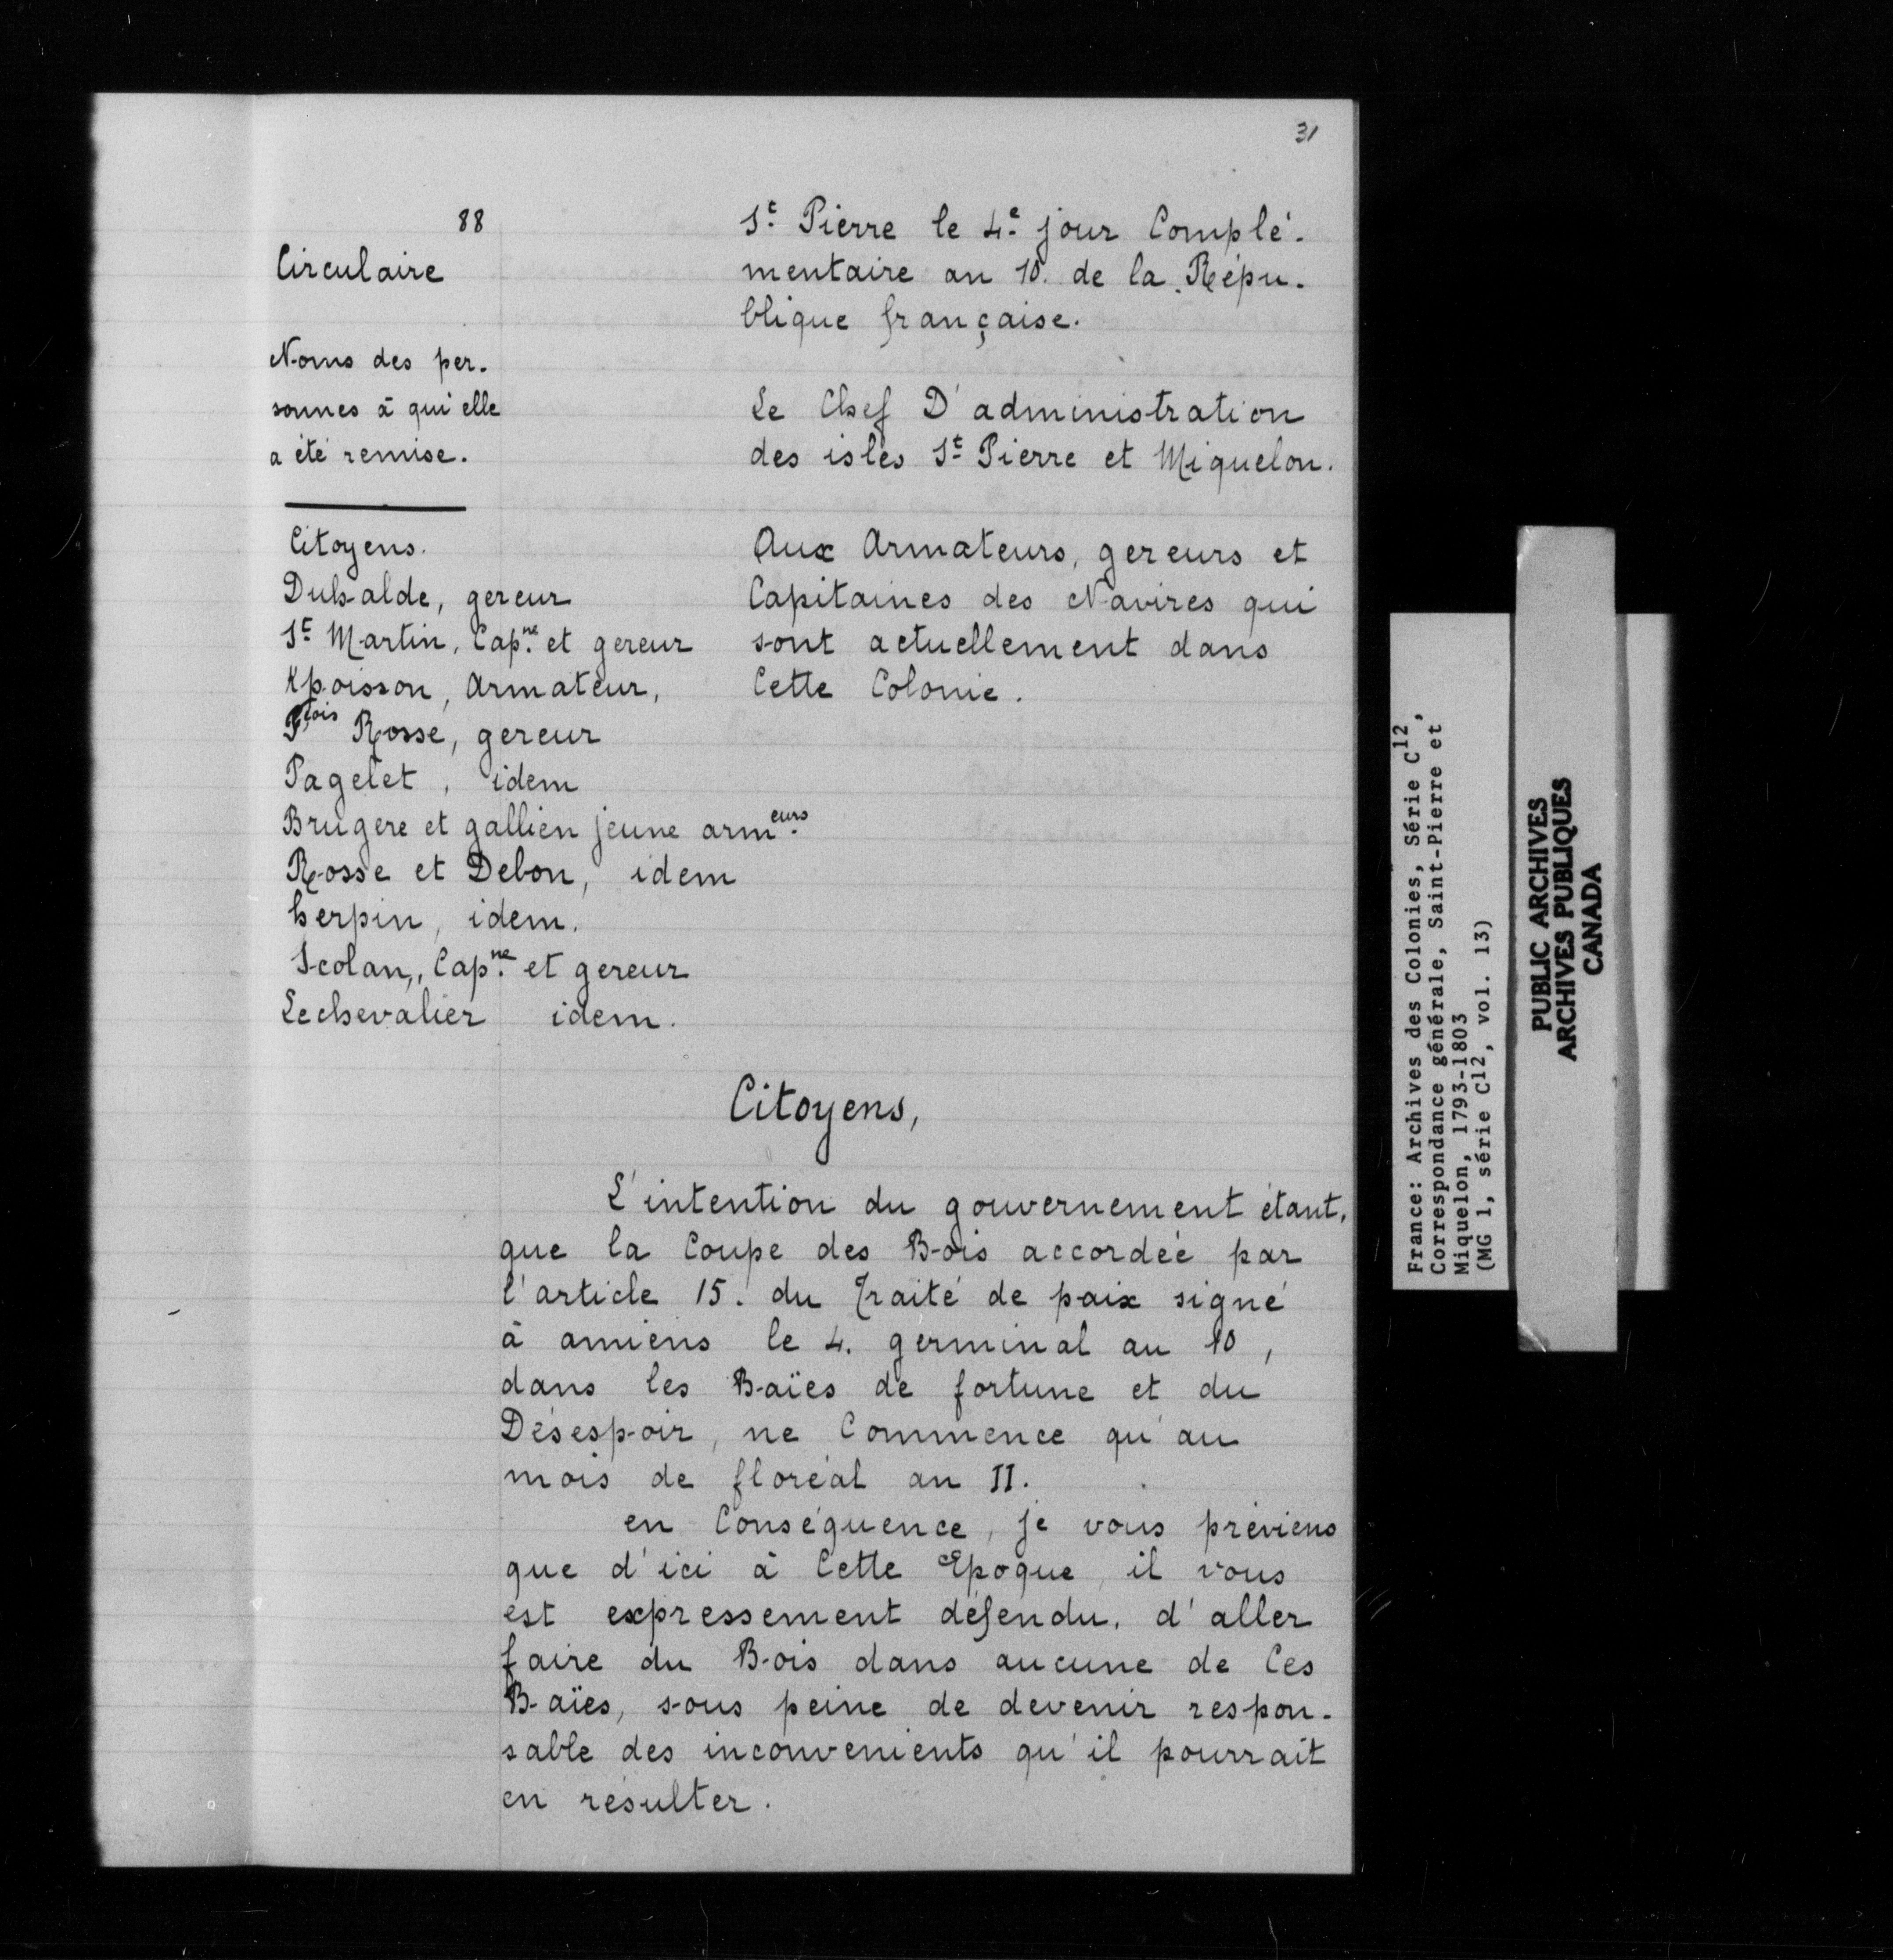 31
88
Circulaire
Noms des per-
sonnes à qui elle
a été remise.
Citoyens.
Duhalde, gereur
St Martin, Capne et gereur
Kpoisson, Armateur,
Fçois Rosse, gereur
Pagelet, idem
Brugere et gallien jeune armeurs
Rosse et Debon, idem
herpin, idem.
Scolan, Capne et gereur
Lechevalier idem.
St Pierre le 4e jour Complé-
mentaire an 10. de la Répu-
blique française.
Le Chef D'administration
des isles St Pierre et Miquelon.
Aux Armateurs, gereurs et
Capitaines des Navires qui
sont actuellement dans
Cette Colonie.
Citoyens,
L'intention du gouvernement étant,
que la Coupe des Bois accordée par
l'article 15. du Traité de paix signé
à amiens le 4. germinal an 10,
dans les Baïes de fortune et du
Désespoir, ne Commence qu'au
mois de floréal an II.
en Conséquence, je vous préviens
que d'ici à Cette Epoque, il vous
est expressement défendu, d'aller
faire du Bois dans aucune de Ces
Baïes, sous peine de devenir respon-
sable des inconvenients qu'il pourrait
en résulter.
France: Archives des Colonies, Série C12,
Correspondance générale, Saint-Pierre et
Miquelon, 1793-1803
(MG 1, série C12, vol. 13)
PUBLIC ARCHIVES
ARCHIVES PUBLIQUES
CANADA